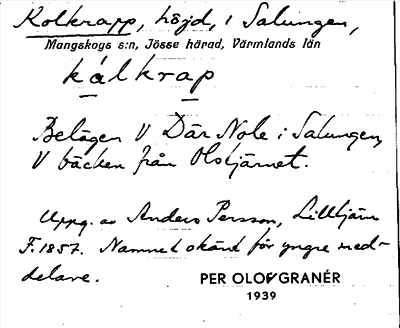 Kolkrapp, höjd, i Salungen,
Mangskogs s:n, Jösse härad, Värmlands län
kålkrap
Belägen V Där Nole i Salungen,
V bäcken från Olstjärnet.
Uppg. av Anders Persson, Lilltjärn
F. 1857. Namnet okänt för yngre med-
delare.
PER OLOF GRANÉR
1939